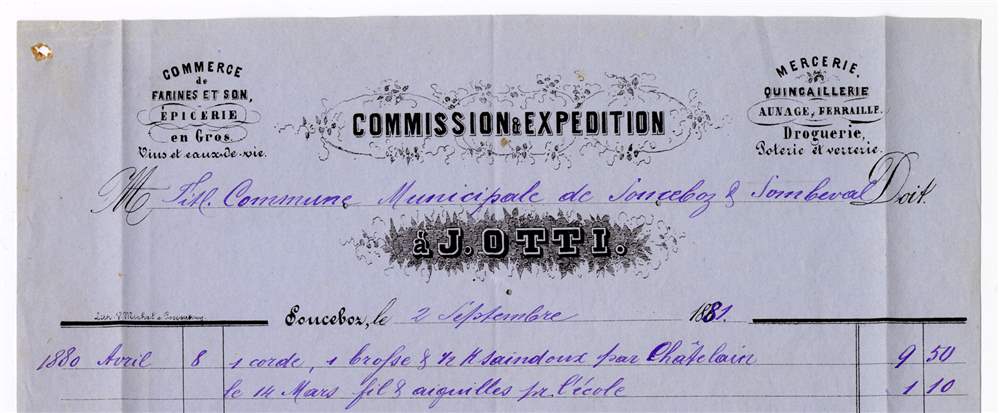 COMMERCE
de
FARINES ET SON,
ÉPICERIE
en Gros.
Vins et eaux-de-vie.
COMMISSION & EXPÉDITION
MERCERIE,
QUINCAILLERIE
AUNAGE, FERRAILLE.
Droguerie,
Poterie et verrerie.
M Tit. Commune Municipale de Sonceboz & Sombeval Doit.
à J. OTTI.
Sonceboz, le 2 Septembre 1881.
1880 Avril 8 1 corde, 1 brosse & ½ ℔ saindoux par Châtelain 9 50
le 14 Mars fil & aiguilles pr. l'école 1 10